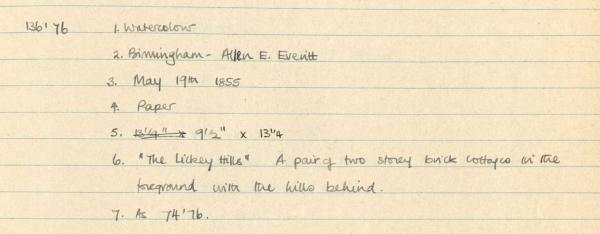 136'76 1. Watercolour
2. Birmingham - Allen E. Everitt
3. May 19th 1855
4. Paper
5. 13¼" x 9½" x 13¼
6. "The Lickey Hills" A pair of two storey brick cottages in the
foreground with the hills behind.
7. As 74'76.